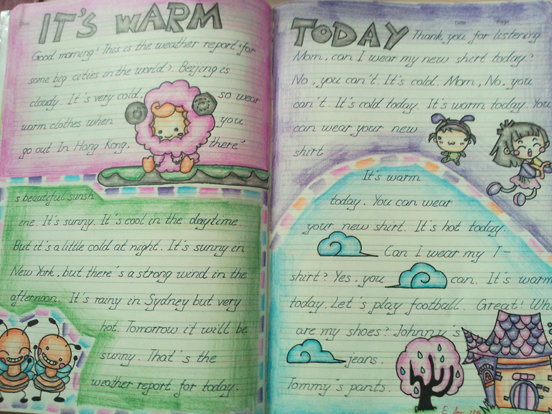 IT'S WARM
Good morning! This is the weather report for
some big cities in the world. Beijing is
cloudy. It's very cold, so wear
warm clothes when you
go out In Hong Kong, there'
s beautiful sunsh
ine. It's sunny. It's cool in the daytime.
But it's a little cold at night. It's sunny in
New York, but there's a strong wind in the
afternoon. It's rainy in Sydney but very
hot. Tomorrow it will be
sunny. That's the
weather report for today.
TODAY Thank you for listening.
Mom, can I wear my new shirt today?
No, you can't. It's cold. Mom, No, you
can't. It's cold today. It's warm today. You
can wear your new
shirt
It's warm
today. You can wear
your new shirt. It's hot today
Can I wear my T-
shirt? Yes, you can. It's warm
today. Let's play football. Great!
are my shoes? Johnny's
jeans.
Tommy's pants.